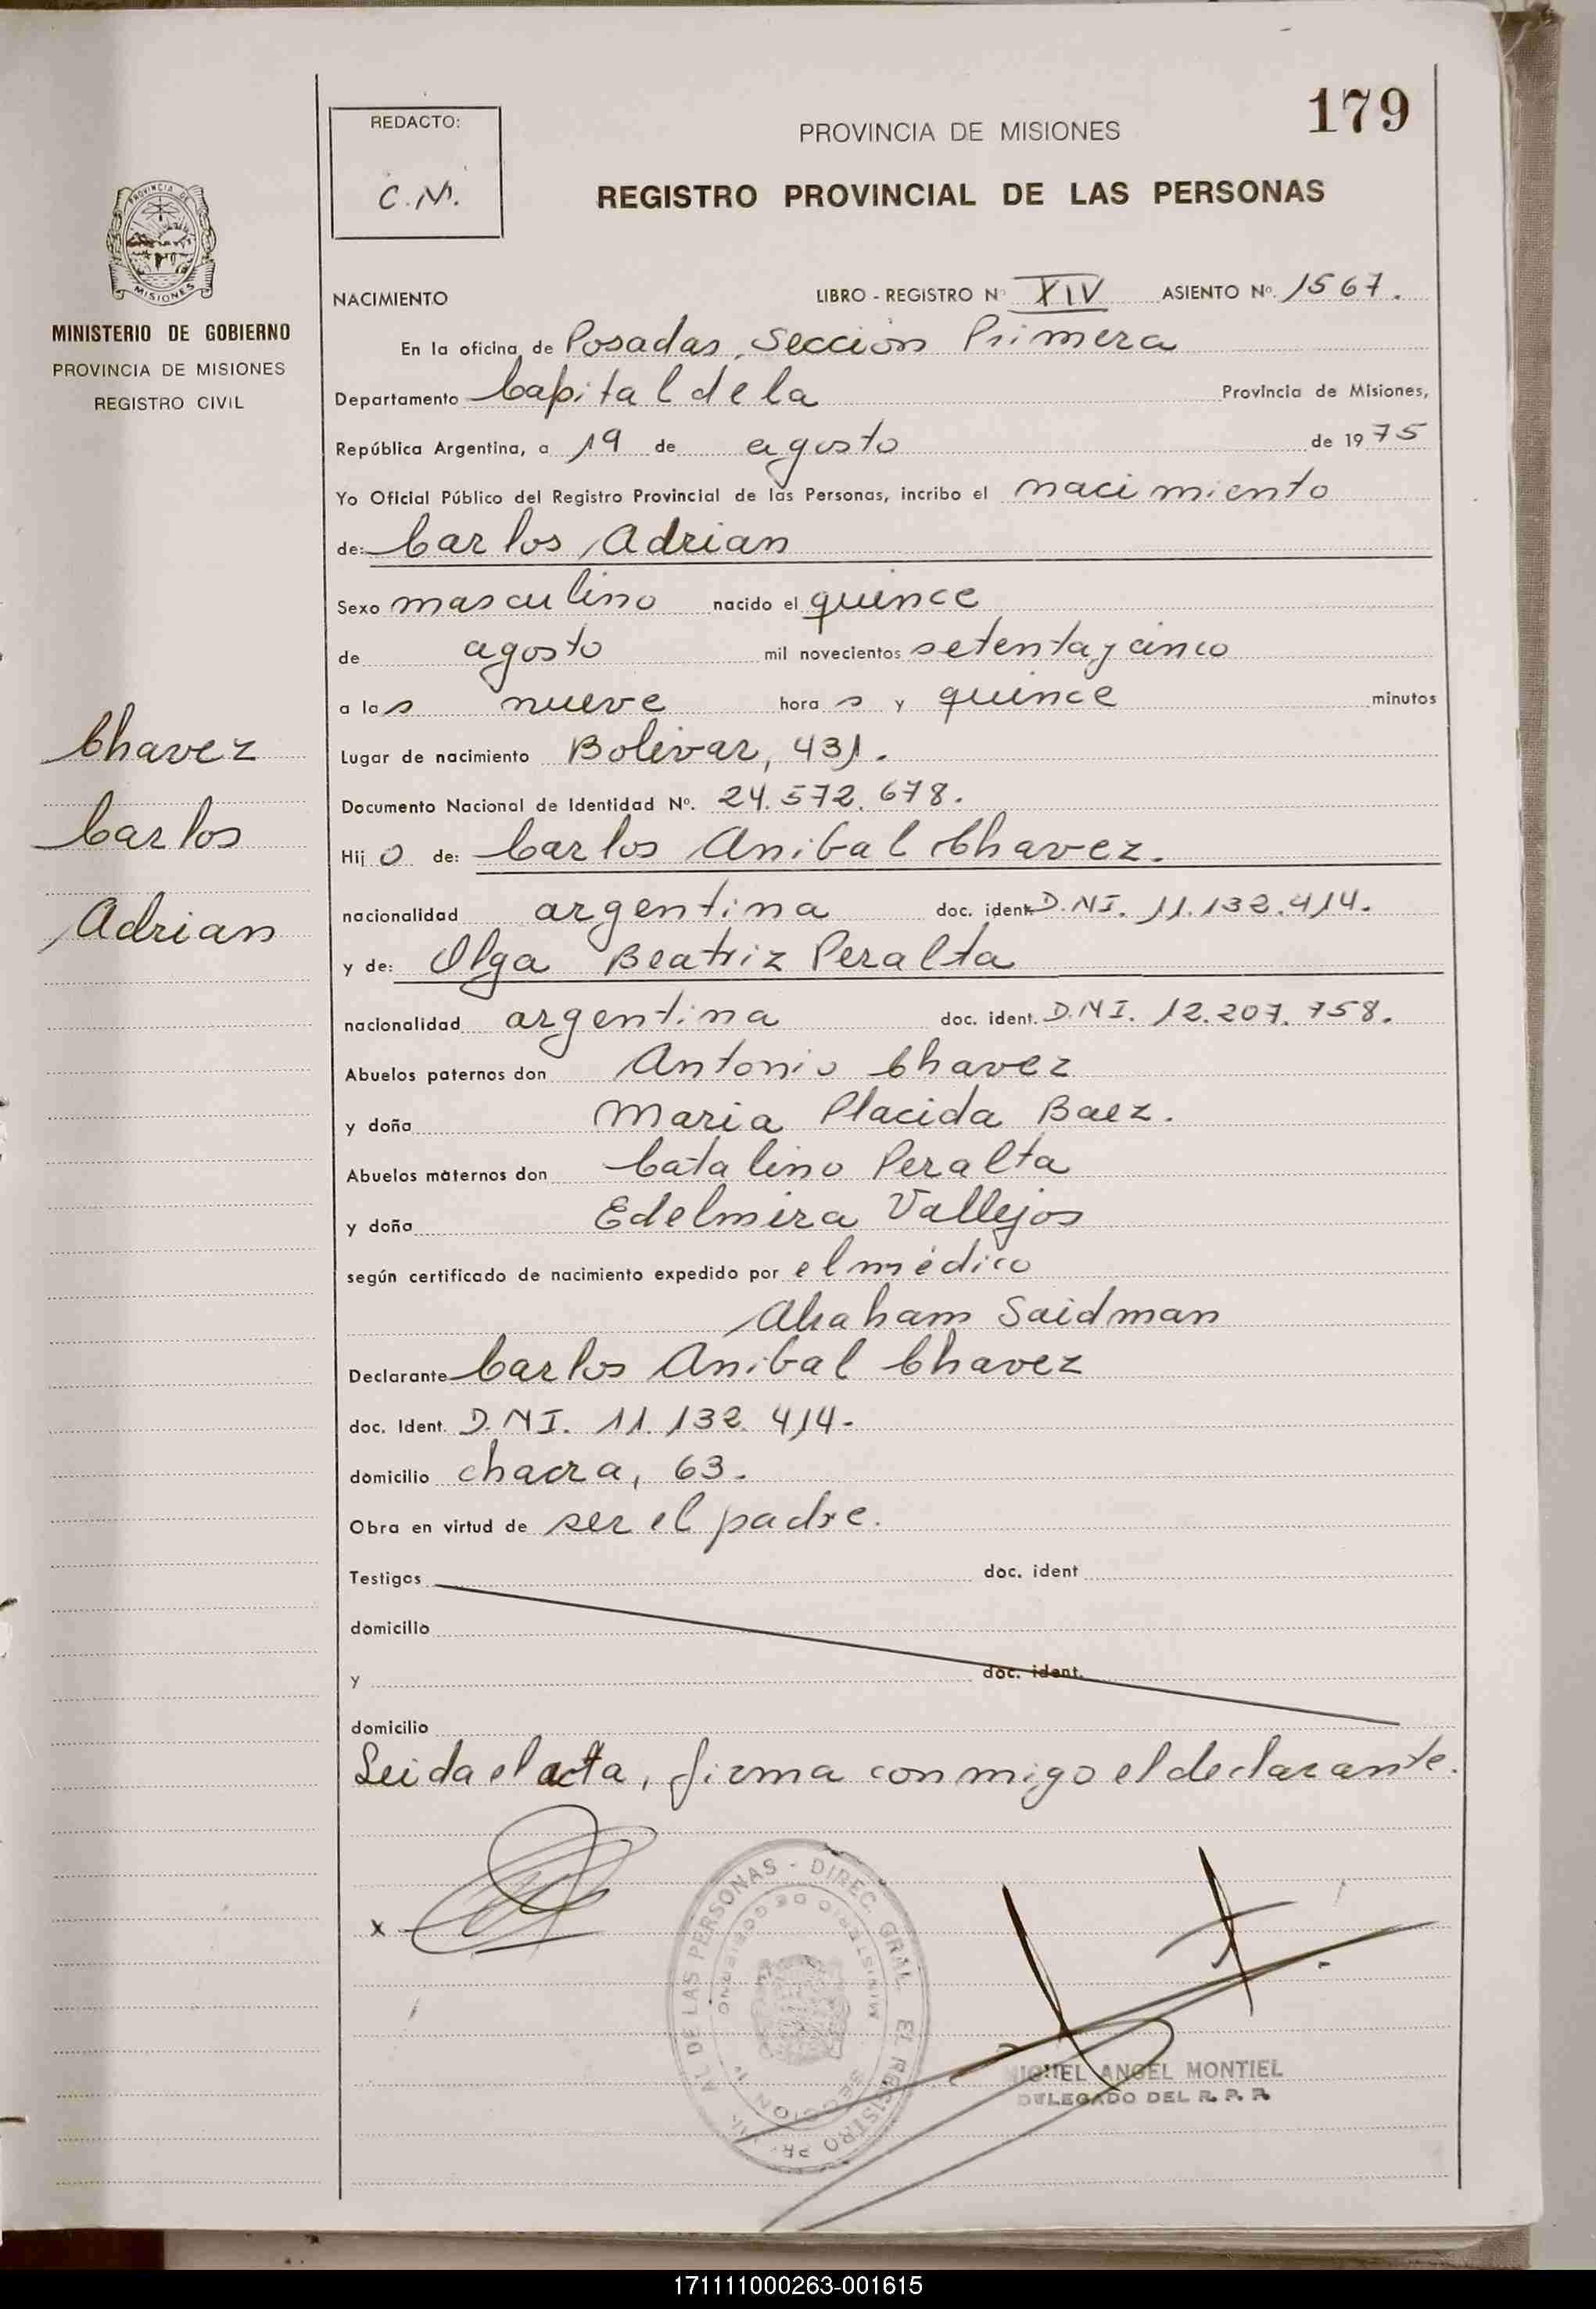 179
REDACTO:
C.M.
PROVINCIA DE MISIONES
REGISTRO PROVINCIAL DE LAS PERSONAS
PROVINCIA DE
MISIONES
MINISTERIO DE GOBIERNO
PROVINCIA DE MISIONES
REGISTRO CIVIL
NACIMIENTO LIBRO - REGISTRO Nº XIV ASIENTO Nº. 1567.
En la oficina de Posadas, Sección Primera
Departamento Capital de la Provincia de Misiones,
República Argentina, a 19 de agosto de 1975
Yo Oficial Público del Registro Provincial de las Personas, incribo el nacimiento
de: Carlos Adrian
Sexo masculino nacido el quince
de agosto mil novecientos setenta y cinco
a las nueve horas y quince minutos
Chavez
Carlos
Adrian
Lugar de nacimiento Bolivar, 431.
Documento Nacional de Identidad Nº. 24.572.678.
Hijo de: Carlos Anibal Chavez.
nacionalidad argentina doc. ident. D.N.I. 11.132.414.
y de: Olga Beatriz Peralta
nacionalidad argentina doc. ident. D.N.I. 12.207.758.
Abuelos paternos don Antonio Chavez
y doña Maria Placida Baez.
Abuelos maternos don Catalino Peralta
y doña Edelmira Vallejos
según certificado de nacimiento expedido por el médico
Abraham Saidman
Declarante Carlos Anibal Chavez
doc. Ident. D.N.I. 11.132.414-
domicilio chacra, 63.
Obra en virtud de ser el padre.
Testigos doc. ident
domicilio
y doc. ident.
domicilio
Leida el acta, firma conmigo el declarante.
x
AL DE LAS PERSONAS - DIREC. GRAL. EL REGISTRO
MINISTERIO DE GOBIERNO
SECCION
MIGUEL ANGEL MONTIEL
DELEGADO DEL R. P. P.
171111000263-001615